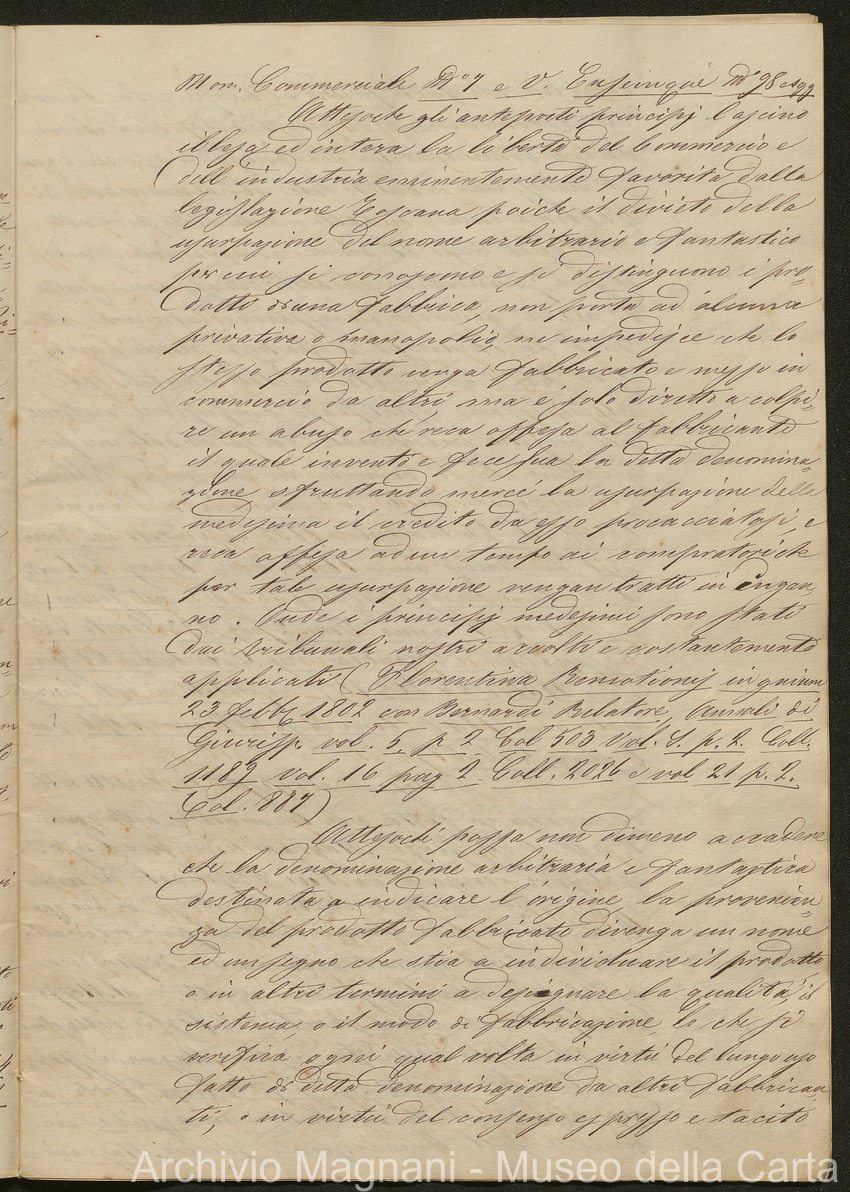 Nom. Commerciale No 7 e V. Enseigne No 98 e sgg
Attesoche gli anteposti principj lascino
illesa ed intera la libertà del Commercio e
dell'industria eminentemente favorita dalla
legislazione Toscana poiche il divieto della
usurpazione del nome arbitrario e fantastico
per cui si conoscono e si distinguono i pro=
dotti di una fabbrica, non porta ad alcuna
privativa o monopolio, ne impedisce che lo
stesso prodotto venga fabbricato e messo in
commercio da altri ma è solo diretto a colpi=
re un abuso che reca offesa al fabbricante
il quale inventò e fece sua la detta denomina=
zione sfruttando mercé la usurpazione della
medesima il credito da esso procacciatosi, e
reca offesa ad un tempo ai compratori che
per tale usurpazione vengan tratti in ingan
no. Onde i principj medesimi sono stati
dai tribunali nostri accolti e costantemente
applicati (Florentina Remotionis
23 febb. 1802 con Bernardi Relatore, Annali di
Giurisp. vol. 5. p 2 Col 503 Vol. S. p. 2. Coll.
1189 vol. 16 pag 2 Coll. 2026 e vol 21 p. 2.
Col. 887)
Attesoché possa non dimeno accadere
che la denominazione arbitraria e fantastica
destinata a indicare l'origine, la provenien=
za del prodotto fabbricato divenga un nome
ed un segno che stia a individuare il prodotto
o in altri termini a designare la qualità, il
sistema, o il modo di fabbricazione, lo che si
verifica ogni qual volta in virtù del lungo uso
fatto di detta denominazione da altri fabbrican=
ti, o in virtù del consenso espresso e tacito
Archivio Magnani - Museo della Carta